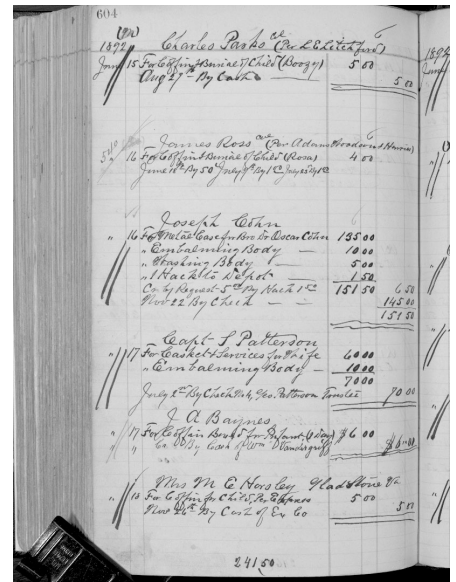 604
1892 Charles Parks col (Per L E Litchford)
June 15 For Coffin & Burial of Child (Boozy) 5 00
Aug 27th By Cash 5 00
James Ross col (Per Adams
16 For Coffin & Burial of Child (Rosa) 4 00
June 18th By 50 July By 1 00 July
Joseph Cohn
" 16 For Metal Case for Bro Dr Oscar Cohn 135 00
" Embalming Body 10 00
" Washing Body 5 00
" 1 Hack to Depot 1 50
Cr by Request 5 00 By Hack 1 50 151 50 6 50
Nov 22 By Check 145 00
151 50
Capt S Patterson
" 17 For Casket & Services for Wife 60 00
" Embalming Body 10 00
70 00
July 2nd By Check Geo. Patterson Trustee 70 00
J A Baynes
" 17 For Coffin Box for Infant (1 Day) $6 00
" Cr By Vandegrift $6 00
Mrs M E Horsley Gladstone Va
" 18 For Coffin for Child, Per Express 5 00
Nov 26th By Cost of Ex Co 5 00
241 50